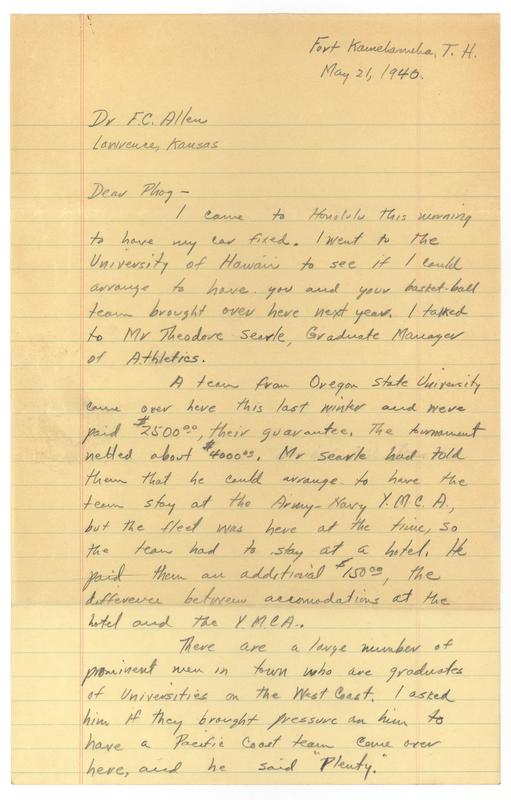 Fort Kamehameha, T. H.
May 21, 1940.
Dr F.C. Allen
Lawrence, Kansas
Dear Phog –
I came to Honolulu this morning
to have my car fixed. I went to the
University of Hawaii to see if I could
arrange to have you and your basket-ball
team brought over here next year. I talked
to Mr Theodore Searle, Graduate Manager
of Athletics.
A team from Oregon State University
came over here this last winter and were
paid $2500.00, their guarantee. The tournament
netted about $4000.00. Mr Searle had told
them that he could arrange to have the
team stay at the Army-Navy Y.M.C.A.,
but the fleet was here at the time, so
the team had to stay at a hotel. He
paid them an additional $150.00, the
difference between accomodations at the
hotel and the YMCA.
There are a large number of
prominent men in town who are graduates
of Universities on the West Coast. I asked
him if they brought pressure on him to
have a Pacific Coast team come over
here, and he said "Plenty."